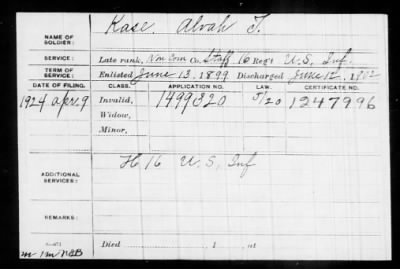 Kase, Alvah T.
NAME OF SOLDIER:
SERVICE: Late rank, Non Com Co. Staff 16 Reg't U.S. Inf.
TERM OF SERVICE: Enlisted June 13, 1899 Discharged June 12, 1902
DATE OF FILING. CLASS. APPLICATION NO. LAW. CERTIFICATE NO.
1924 Apr. 9 Invalid, 1499320 J/20 1247996
Widow,
Minor,
H 16 U.S. Inf
ADDITIONAL SERVICES:
REMARKS:
Died , 1 , at